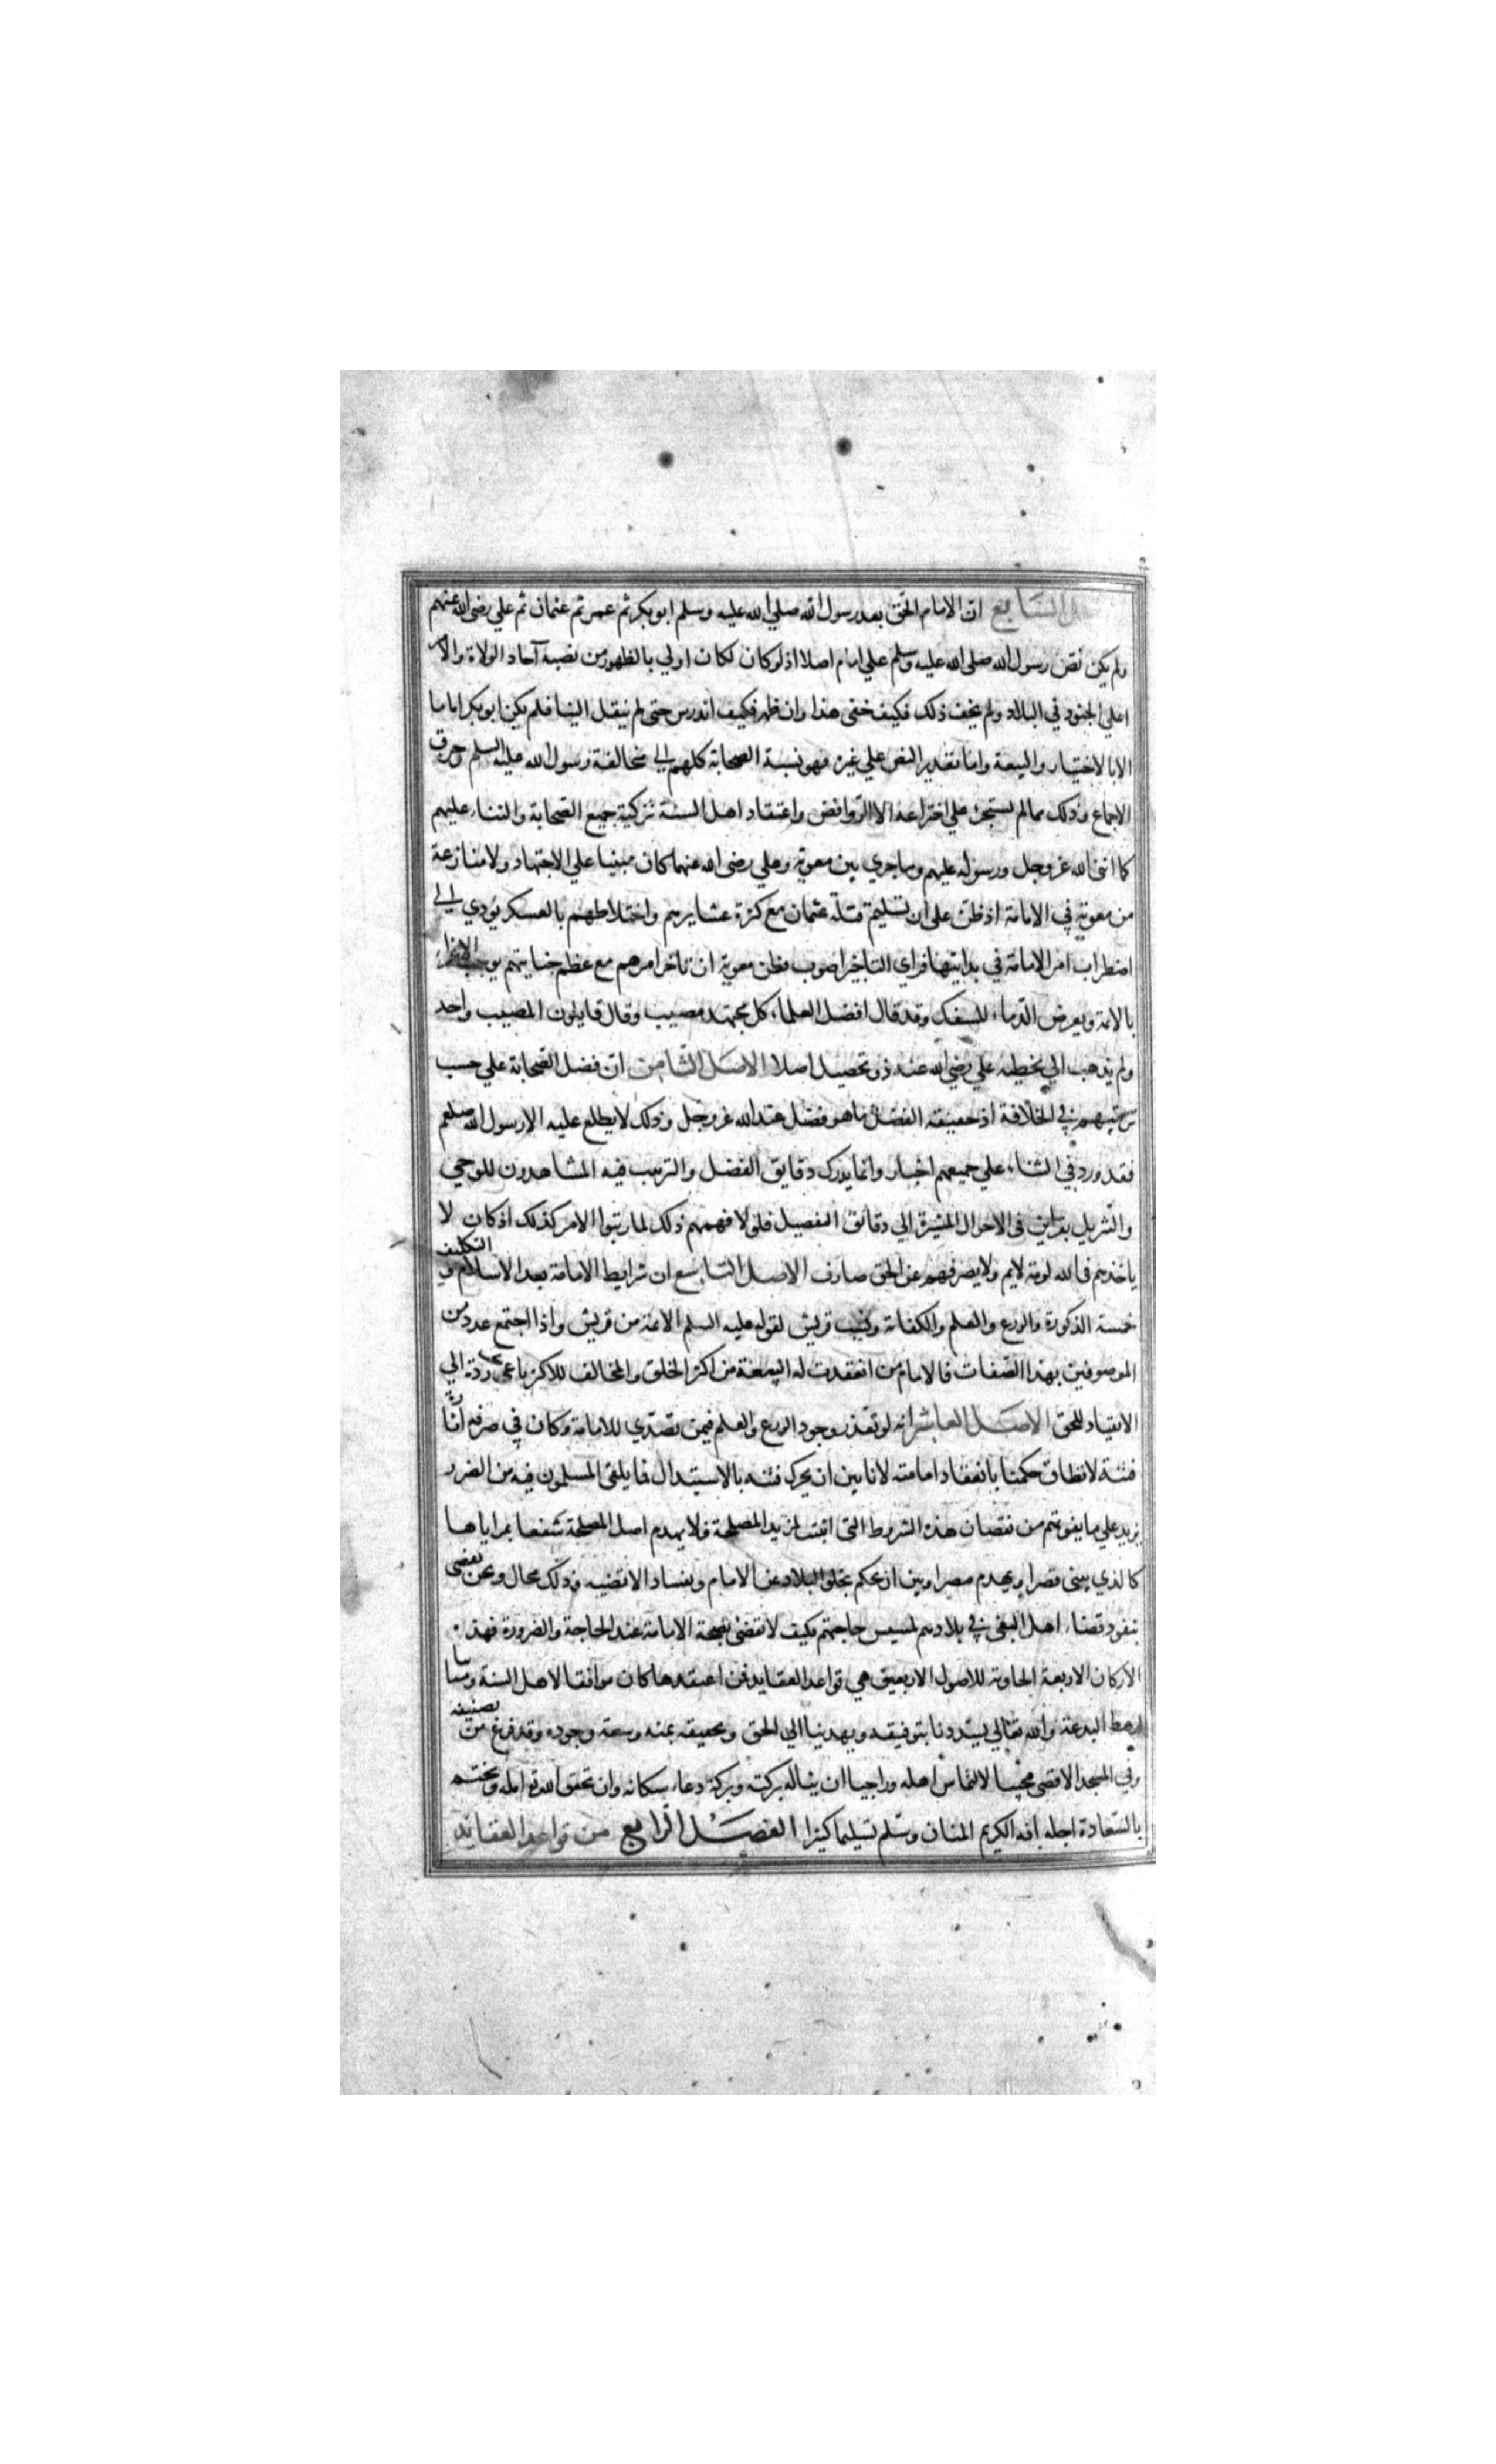 السابع ان الامام الحق بعد رسول الله صلي الله عليه وسلم ابو بكر ثم عمر ثم عثمان ثم علي رضى الله عنهم
ولم يكن نص رسول الله صلى الله عليه وسلم علي امام اصلا اذ لو كان لكان اولي بالظهور من نصبه آحاد الولاة والامر
اعلي الجنود في البلاد ولم يخف ذلك فكيف خفى هذا وان ظهر فكيف اندرس حتى لم ينقل الينا فلم يكن ابو بكر اماما
الا بالاختيار والبيعة واما تقدير النص علي غيره فهو نسبة الصحابة كلهم الي مخالفة رسول الله عليه السلم وخرق
الاجماع وذلك مما لم يستجرئ علي اختراعه الا الروافض واعتقاد اهل السنة تزكية جميع الصحابة والثناء عليهم
كما اثنى الله عز وجل ورسوله عليهم وما جري بين معوية وعلي رضى الله عنهما كان مبنيا علي الاجتهاد ولا منازعة
من معوية في الامامة اذ ظن على ان تسليم قتلة عثمان مع كثرة عشايرهم واختلاطهم بالعسكر يؤدي الي
اضطراب امر الامامة في بدايتها فراي التاخير اصوب فظن معوية ان تاخر امرهم مع عظم جنايتهم يوجب الاغراء
بالائمة ويعرض الدماء للسفك وقد قال افضل العلماء كل مجتهد مصيب وقال قايلون المصيب واحد
ولم يذهب الي تخطيه علي رضي الله عنه ذو تحصيل اصلا الاصل الثامن ان فضل الصحابة علي حسب
ترتيبهم في الخلافة اذ حقيقة الفضل ما هو فضل عند الله عز وجل وذلك لا يطلع عليه الا رسول الله صلعم
فقد ورد في الثناء علي جميعهم اخبار وانما يدرك دقايق الفضل والترتيب فيه المشاهدون للوحي
والتنزيل بقراين في الاحوال المشيرة الي دقائق التفصيل فلو لا فهمهم ذلك لما رتبوا الامر كذلك اذ كان لا
ياخذهم في الله لومة لايم ولا يصرفهم عن الحق صارف الاصل التاسع ان شرايط الامامة بعد الاسلام والتكليف
خمسة الذكورة والورع والعلم والكفاة ونسب قريش لقوله عليه السلم الائمة من قريش واذا اجتمع عدد من
الموصوفين بهذا الصفات فالامام من انعقدت له البيعة من اكثر الخلق والمخالف للاكثر باغ يجب رده الي
الانقياد للحق الاصل العاشر انه لو تعذر وجود الورع والعلم فيمن تصدي للامامة وكان في صرفه اثارة
فتنة لا تطاق حكمنا بانعقاد امامته لانا بين ان يحرك فتنه بالاستبدال فما يلقى المسلمون فيه من الضرر
يزيد علي ما يفوتهم من نقصان هذه الشروط التى اثبتت لمزيد المصلحة فلا يهدم اصل المصلحة شغفا بمزاياها
كالذي يبنى قصرا ويهدم مصرا وبين ان يحكم بخلو البلاد عن الامام وبفساد الاقضيه وذلك محال ونحن نقضى
بنفوذ قضاء اهل البغى في بلادهم لمسيس حاجتهم فكيف لا نقضى بصحة الامامة عند الحاجة والضرورة فهذه
الاركان الاربعة الحاوية للاصول الاربعين هي قواعد العقايد فمن اعتقدها كان موافقا لاهل السنة ومباينا
لرهط البدعة والله تعالي يسددنا بتوفيقه ويهدينا الي الحق وتحقيقه بمنه وسعة وجوده وقد فرغ من تصنيفه
وفي المسجد الاقصى مجيبا لالتماس اهله وراجيا ان يناله بركته وبركة دعاء سكانه وان تحقق الله تع امله ويختم
بالسعادة اجله انه الكريم المنان وسلم تسليما كثيرا الفصل الرابع من قواعد العقايد